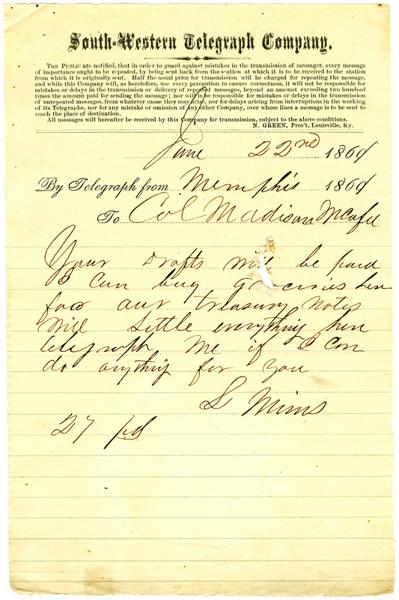 South-Western Telegraph Company.
THE PUBLIC are notified, that in order to guard against mistakes in the transmission of messages, every message
of importance ought to be repeated, by being sent back from the station at which it is to be received to the station
from which it is originally sent. Half the usual price for transmission will be charged for repeating the message,
and while this Company will, as heretofore, use every precaution to ensure correctness, it will not be responsible for
mistakes or delays in the transmission or delivery of repeated messages, beyond an amount exceeding two hundred
times the amount paid for sending the message; nor will it be responsible for mistakes or delays in the transmission
of unrepeated messages, from whatever cause they may arise, nor for delays arising from interruptions in the working
of its Telegraphs, nor for any mistake or omission of any other Company, over whose lines a message is to be sent to
reach the place of destination.
All messages will hereafter be received by this Company for transmission, subject to the above conditions.
N. GREEN, Pres't, Louisville, Ky.
June 22nd 1861
By Telegraph from Memphis 1861
To Col Madison McAfee
Your drafts will be paid
I can buy groceries here
for our treasury notes
will settle everything here
telegraph me if I can
do anything for you
S Mims
27 pd